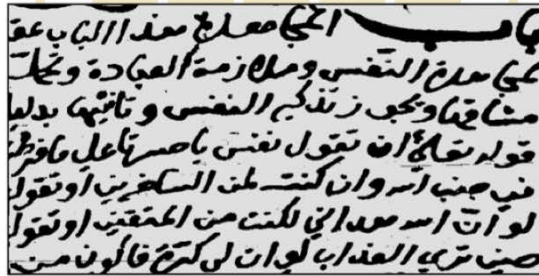 باب المجاهدة هذا الباب عقد
لمجاهدة النفس وملازمة العبادة وتحمل
مشاقها ويجوز تذكير النفس وتأنيثها بدليل
قوله تعالى ان تقول نفس ياحسرتا على مافرطت
في جنب الله وان كنت لمن الساخرين او تقول
لو ان الله هداني لكنت من المتقين او تقول
حين ترى العذاب لو ان لي كرة فاكون من